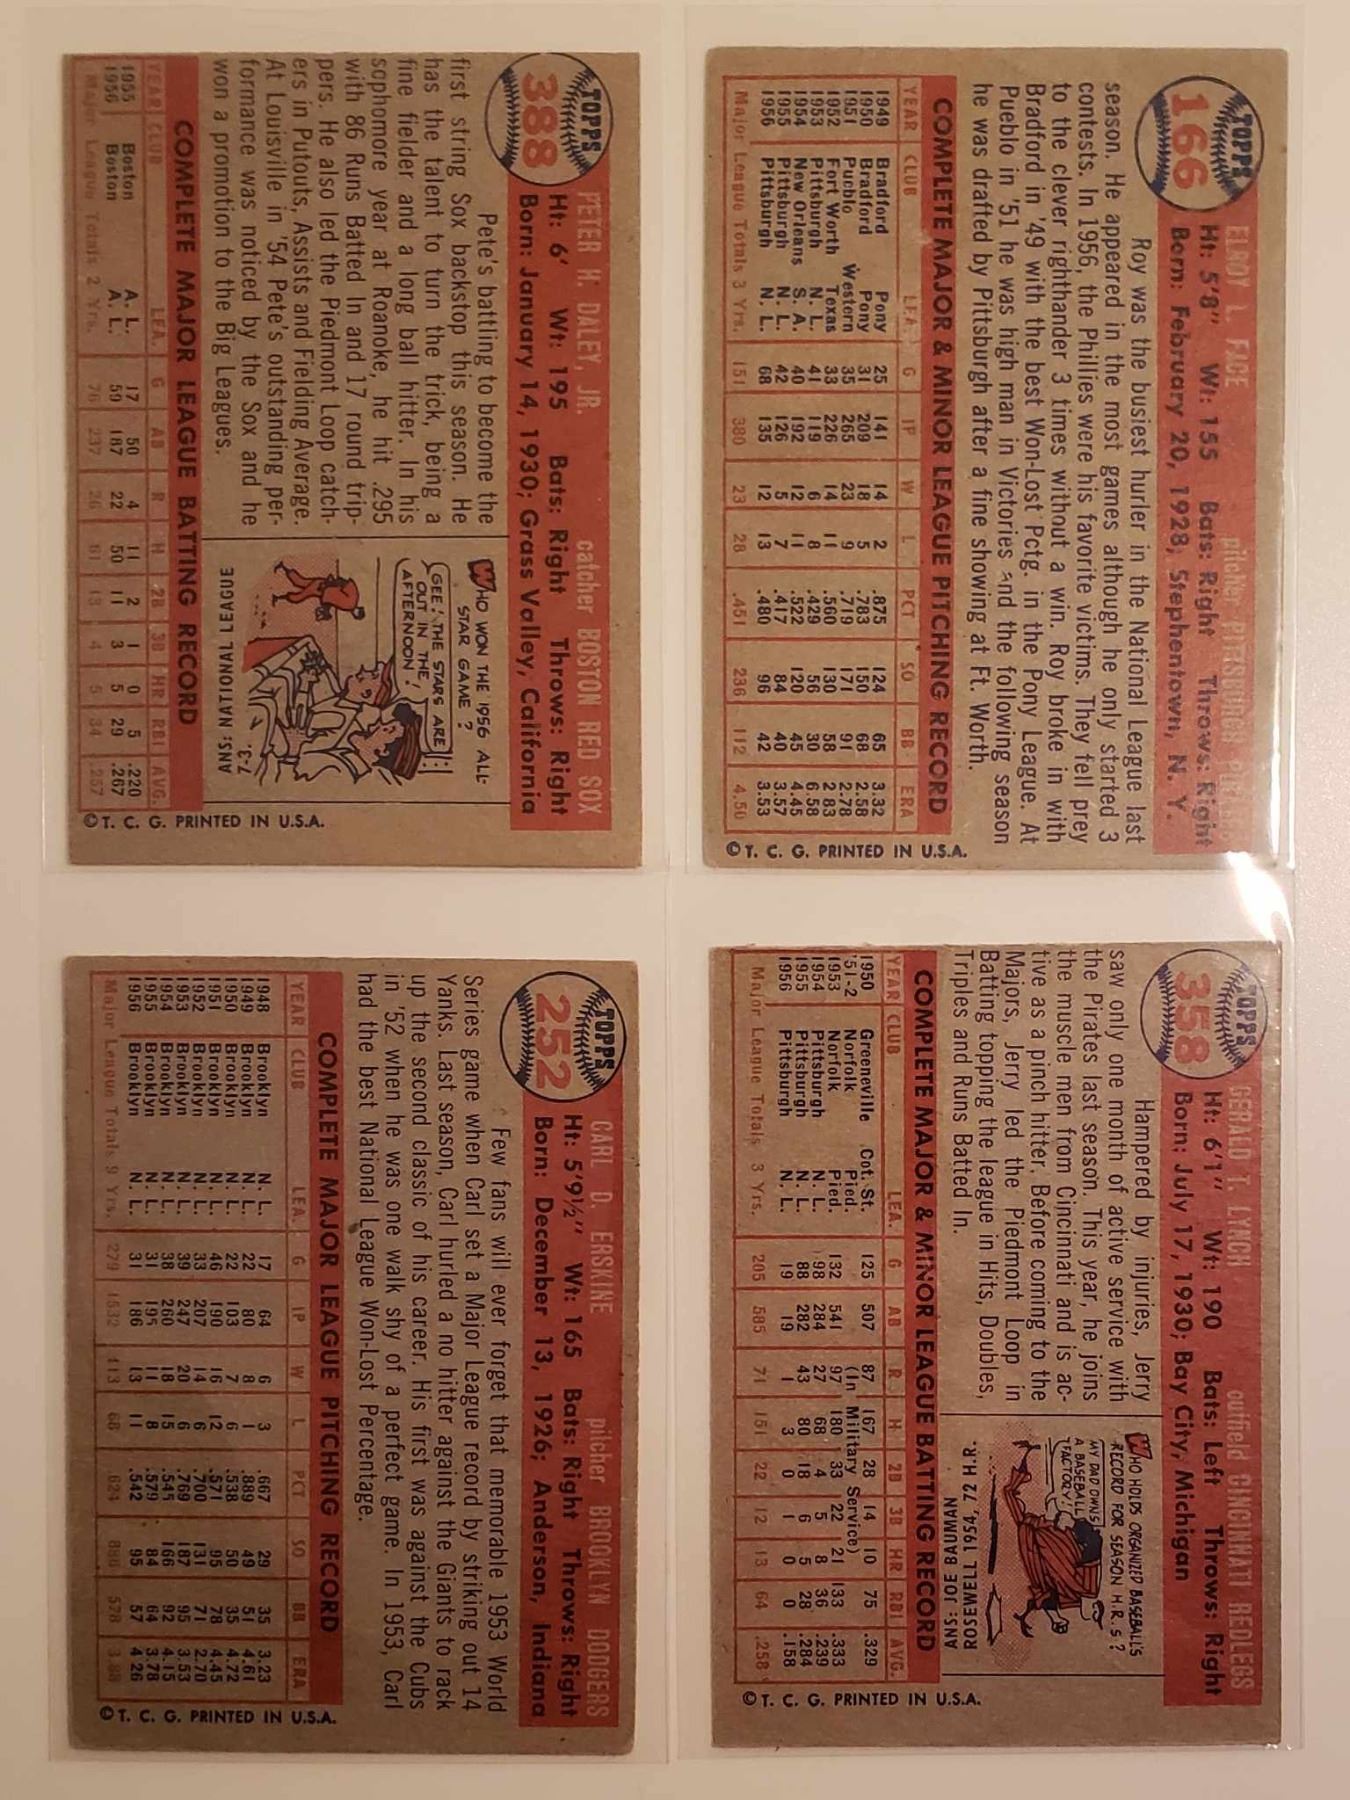 TOPPS
388
PETER H. DALEY, JR. catcher BOSTON RED SOX
Ht: 6' Wt: 195 Bats: Right Throws: Right
Born: January 14, 1930; Grass Valley, California
Pete's battling to become the
first string Sox backstop this season. He
has the talent to turn the trick, being a
fine fielder and a long ball hitter. In his
sophomore year at Roanoke, he hit .295
with 86 Runs Batted In and 17 round trip-
pers. He also led the Piedmont Loop catch-
ers in Putouts, Assists and Fielding Average.
At Louisville in '54 Pete's outstanding per-
formance was noticed by the Sox and he
won a promotion to the Big Leagues.
WHO WON THE 1956 ALL-
STAR GAME?
GEE! THE STARS ARE
OUT IN THE
AFTERNOON!
ANS: NATIONAL LEAGUE
7-3.
COMPLETE MAJOR LEAGUE BATTING RECORD
YEAR CLUB LEA. G AB R H 2B 3B HR RBI AVG.
1955 Boston A. L. 17 50 4 11 2 1 0 5 .220
1956 Boston A. L. 59 187 22 50 11 3 5 29 .267
Major League Totals 2 Yrs. 76 237 26 61 13 4 5 34 .257
© T. C. G. PRINTED IN U.S.A.
TOPPS
166
ELROY L. FACE pitcher PITTSBURGH PIRATES
Ht: 5'8" Wt: 155 Bats: Right Throws: Right
Born: February 20, 1928, Stephentown, N. Y.
Roy was the busiest hurler in the National League last
season. He appeared in the most games although he only started 3
contests. In 1956, the Phillies were his favorite victims. They fell prey
to the clever righthander 3 times without a win. Roy broke in with
Bradford in '49 with the best Won-Lost Pctg. in the Pony League. At
Pueblo in '51 he was high man in Victories and the following season
he was drafted by Pittsburgh after a fine showing at Ft. Worth.
COMPLETE MAJOR & MINOR LEAGUE PITCHING RECORD
YEAR CLUB LEA. G IP W L PCT SO BB ERA
1949 Bradford Pony 25 141 14 2 .875 124 65 3.32
1950 Bradford Pony 31 209 18 5 .783 150 68 2.58
1951 Pueblo Western 35 265 23 9 .719 171 91 2.78
1952 Fort Worth Texas 33 226 14 11 .560 130 58 2.83
1953 Pittsburgh N. L. 41 119 6 8 .429 56 30 6.58
1954 New Orleans S. A. 40 192 12 11 .522 120 45 4.45
1955 Pittsburgh N. L. 42 126 5 7 .417 84 40 3.57
1956 Pittsburgh N. L. 68 135 12 13 .480 96 42 3.53
Major League Totals 3 Yrs. 151 380 23 28 .451 236 112 4.50
© T. C. G. PRINTED IN U.S.A.
TOPPS
252
CARL D. ERSKINE pitcher BROOKLYN DODGERS
Ht: 5'9½" Wt: 165 Bats: Right Throws: Right
Born: December 13, 1926; Anderson, Indiana
Few fans will ever forget that memorable 1953 World
Series game when Carl set a Major League record by striking out 14
Yanks. Last season, Carl hurled a no hitter against the Giants to rack
up the second classic of his career. His first was against the Cubs
in '52 when he was one walk shy of a perfect game. In 1953, Carl
had the best National League Won-Lost Percentage.
COMPLETE MAJOR LEAGUE PITCHING RECORD
YEAR CLUB LEA. G IP W L PCT SO BB ERA
1948 Brooklyn N. L. 17 64 6 3 .667 29 35 3.23
1949 Brooklyn N. L. 22 80 8 1 .889 49 51 4.61
1950 Brooklyn N. L. 22 103 7 6 .538 50 35 4.72
1951 Brooklyn N. L. 46 190 16 12 .571 95 78 4.45
1952 Brooklyn N. L. 33 207 14 6 .700 131 71 2.70
1953 Brooklyn N. L. 39 247 20 6 .769 187 95 3.53
1954 Brooklyn N. L. 38 260 18 15 .545 166 92 4.15
1955 Brooklyn N. L. 31 195 11 8 .579 84 64 3.78
1956 Brooklyn N. L. 31 186 13 11 .542 95 57 4.26
Major League Totals 9 Yrs. 279 1532 113 68 .624 886 578 3.88
© T. C. G. PRINTED IN U.S.A.
TOPPS
358
GERALD T. LYNCH outfield CINCINNATI REDLEGS
Ht: 6'1" Wt: 190 Bats: Left Throws: Right
Born: July 17, 1930; Bay City, Michigan
Hampered by injuries, Jerry
saw only one month of active service with
the Pirates last season. This year, he joins
the muscle men from Cincinnati and is ac-
tive as a pinch hitter. Before coming to the
Majors, Jerry led the Piedmont Loop in
Batting topping the league in Hits, Doubles,
Triples and Runs Batted In.
WHO HOLDS ORGANIZED BASEBALL'S
RECORD FOR SEASON H.R.s?
MY DAD OWNS
A BASEBALL
FACTORY!
ANS: JOE BAUMAN
ROSEWELL 1954, 72 H.R.
COMPLETE MAJOR & MINOR LEAGUE BATTING RECORD
YEAR CLUB LEA. G AB R H 2B 3B HR RBI AVG.
1950 Greeneville Cot. St. 125 507 87 167 28 14 10 75 .329
'51-2 Norfolk Pied. (In Military Service)
1953 Norfolk Pied. 132 541 97 180 33 22 21 133 .333
1954 Pittsburgh N. L. 98 284 27 68 4 5 8 36 .239
1955 Pittsburgh N. L. 88 282 43 80 18 6 5 28 .284
1956 Pittsburgh N. L. 19 19 1 3 0 1 0 0 .158
Major League Totals 3 Yrs. 205 585 71 151 22 12 13 64 .258
© T. C. G. PRINTED IN U.S.A.